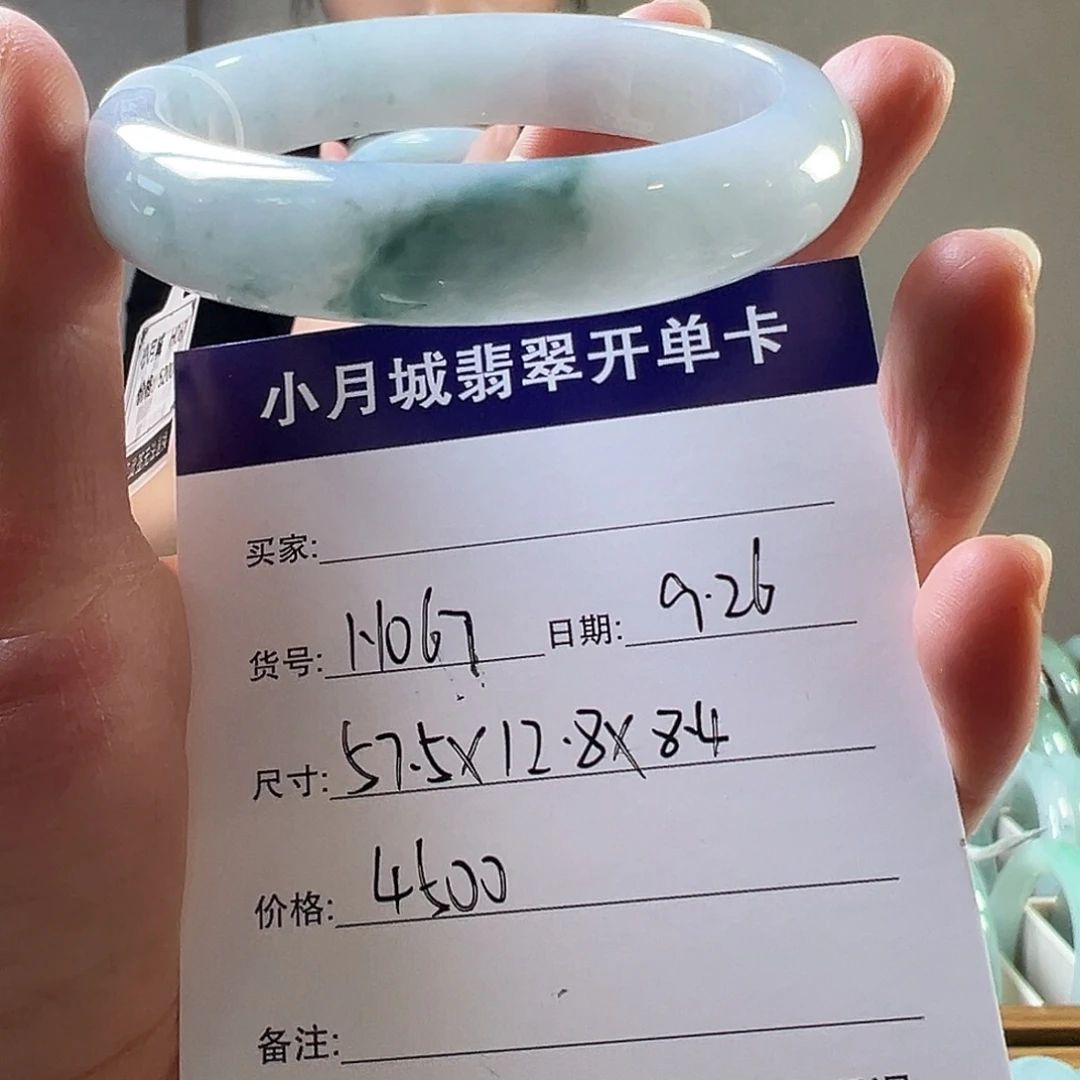 小月城翡翠开单卡
买家:
货号: H067 日期: 9.26
尺寸: 57.5X12.8X8.4
价格: 4500
备注: